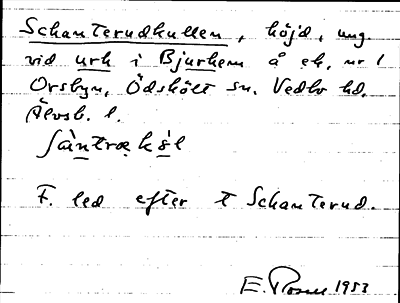 Schanterudkullen, höjd, ung.
vid urh i Bjurhem å ek. nr 1
Orsbyn, Ödskölt sn. Vedbo hd.
Älvsb. l.
F. led efter t Schanterud.
E. Rosell 1953